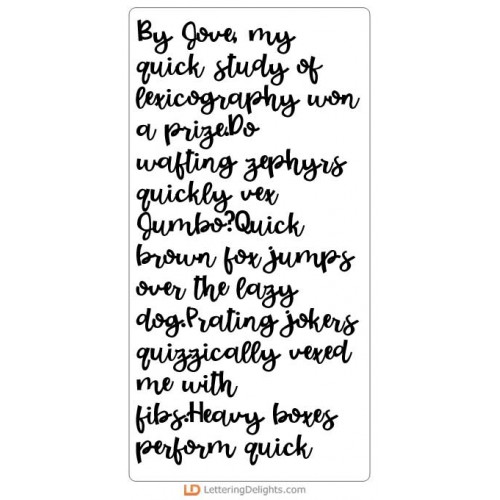 By Jove, my
quick study of
lexicography won
a prize.Do
wafting zephyrs
quickly vex
Jumbo?Quick
brown fox jumps
over the lazy
dog.Prating jokers
quizzically vexed
me with
fibs.Heavy boxes
perform quick
LD LetteringDelights.com